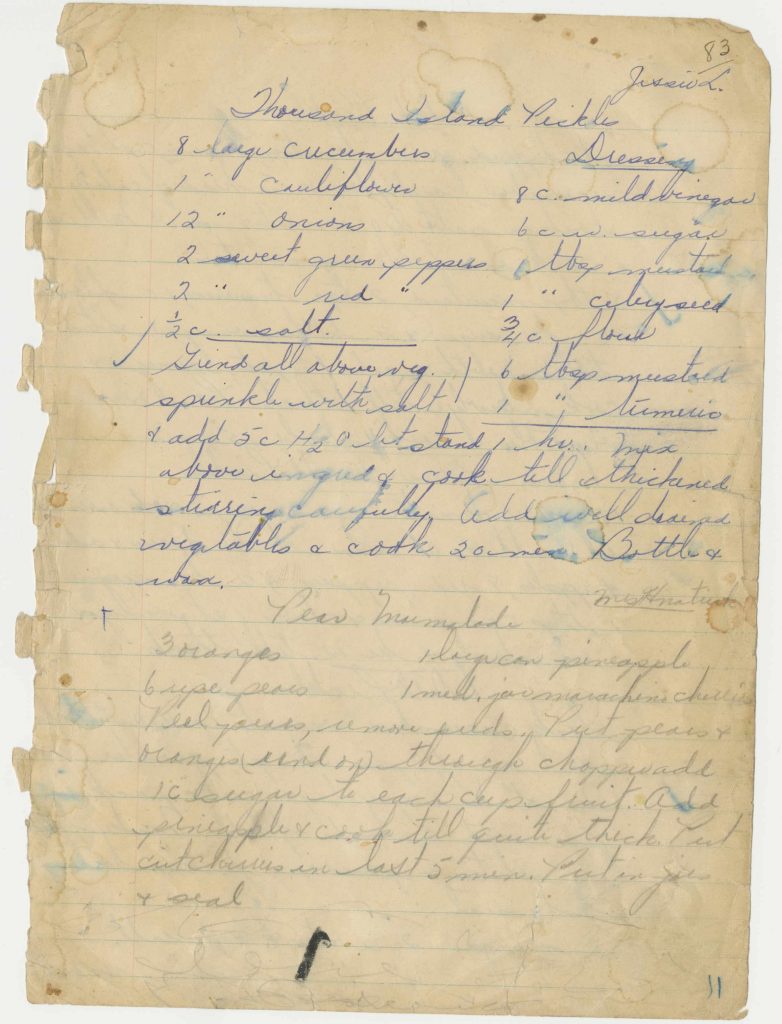 83
Jessie L.
Thousand Island Pickles
8 large cucumbers
1 " cauliflower
12 " onions
2 sweet green peppers
2 " red "
1/2 c. salt.
Dressing
8 c. mild vinegar
6 c w. sugar
1 tbsp mustard
1 " celery seed
3/4 c flour
6 tbsp mustard
1 " turmeric
Grind all above veg.
sprinkle with salt
& add 5 c H2O let stand 1 hr. Mix
above ingred & cook till thickened
stirring carefully. Add well drained
vegetables & cook 20 min. Bottle &
wax.
Pear Marmalade
3 oranges
6 ripe pears
1 large can pineapple
1 med. jar marachino cherries
Peel pears, remove seeds. Put pears &
oranges (rind on) through chopper add
1 c sugar to each cup fruit. Add
pineapple & cook till quite thick. Put
cut cherries in last 5 min. Put in jars
& seal
11